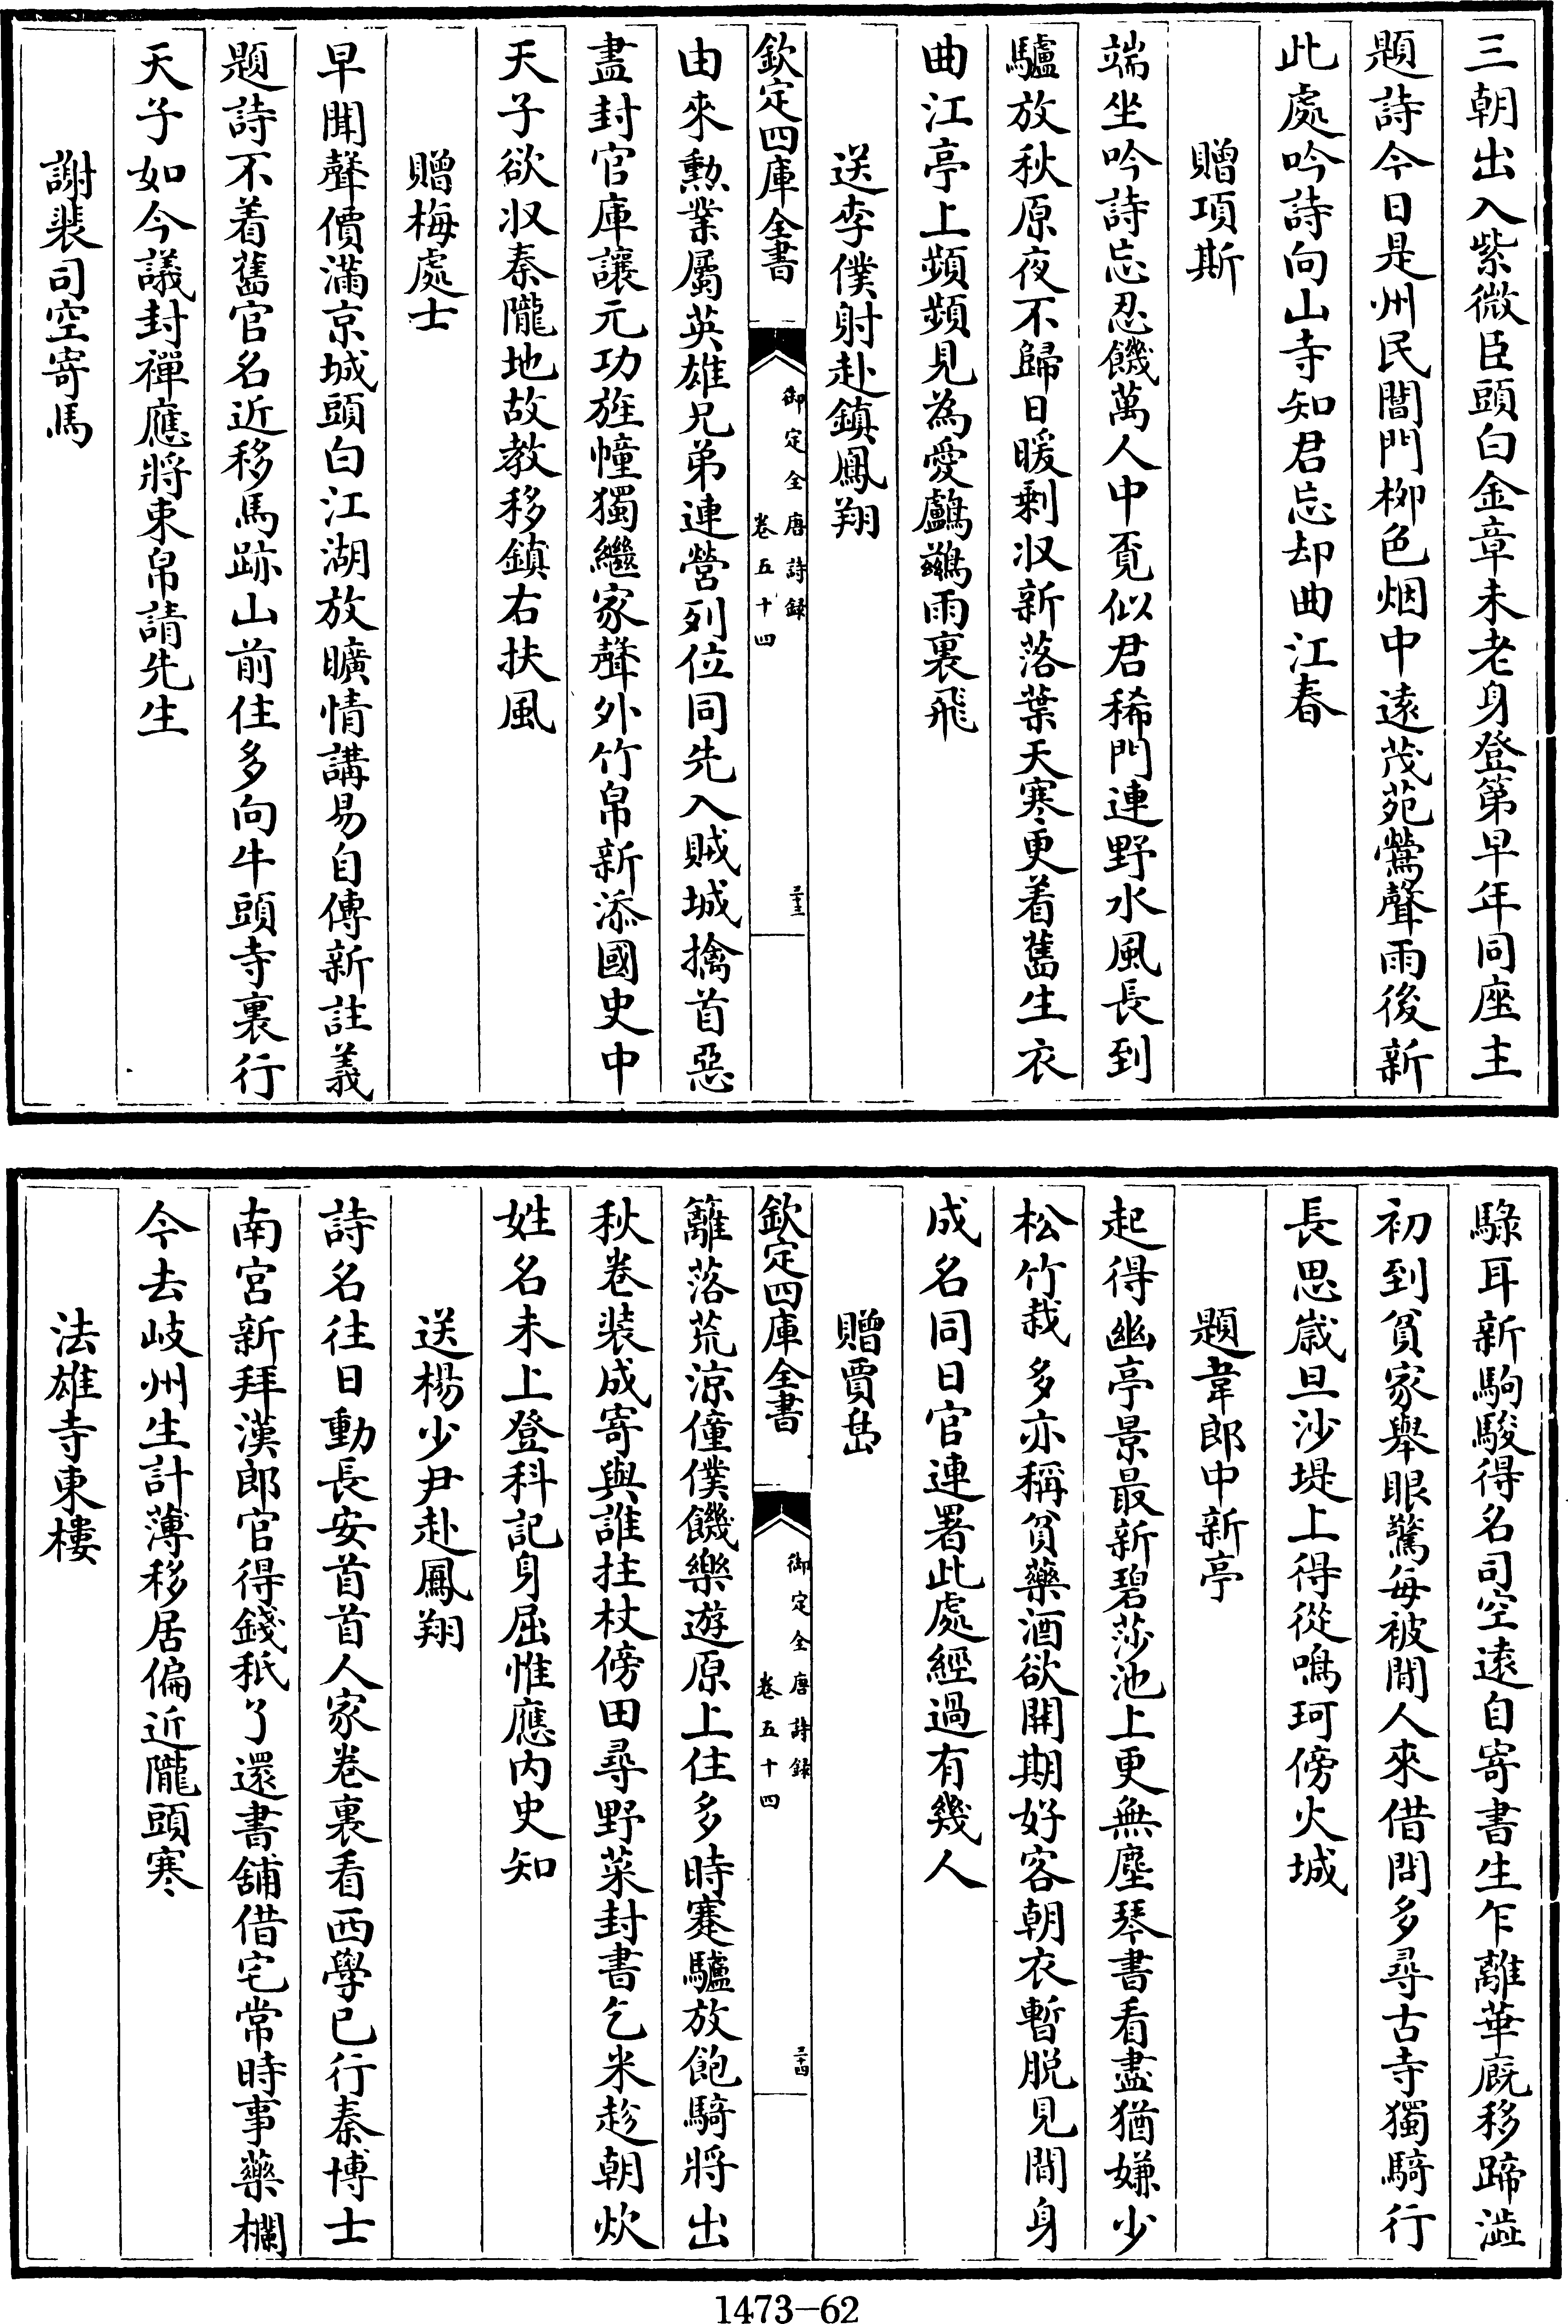 三朝出入紫微臣頭白金章未老身登第早年同座主
題詩今日是州民閶門柳色烟中遠茂苑鶯聲雨後新
此處吟詩向山寺知君忘却曲江春
贈項斯
端坐吟詩忘忍饑萬人中覓似君稀門連野水風長到
驢放秋原夜不歸日暖剩収新落葉天寒更着舊生衣
曲江亭上頻頻見為愛鸕鷀雨裏飛
送李僕射赴鎮鳳翔
欽定四庫全書
御定全唐詩録
卷五十四
三十三
由來勲業屬英雄兄弟連營列位同先入賊城擒首惡
盡封官庫讓元功旌幢獨繼家聲外竹帛新添國史中
天子欲収秦隴地故教移鎮右扶風
贈梅處士
早聞聲價滿京城頭白江湖放曠情講易自傳新註義
題詩不着舊官名近移馬跡山前住多向牛頭寺裏行
天子如今議封禪應將束帛請先生
謝裴司空寄馬
騄耳新駒駿得名司空遠自寄書生乍離華廐移蹄澁
初到貧家舉眼驚每被閒人來借問多尋古寺獨騎行
長思嵗旦沙堤上得從鳴珂傍火城
題韋郎中新亭
起得幽亭景最新碧莎池上更無塵琴書看盡猶嫌少
松竹栽多亦稱貧藥酒欲開期好客朝衣暫脱見閒身
成名同日官連署此處經過有幾人
贈賈島
欽定四庫全書
御定全唐詩録
卷五十四
三十四
籬落荒涼僮僕饑樂遊原上住多時蹇驢放飽騎將出
秋卷装成寄與誰拄杖傍田尋野菜封書乞米趁朝炊
姓名未上登科記身屈惟應内史知
送楊少尹赴鳳翔
詩名往日動長安首首人家卷裏看西學已行秦博士
南宮新拜漢郎官得錢秖了還書舖借宅常時事藥欄
今去岐州生計薄移居偏近隴頭寒
法雄寺東樓
1473—62